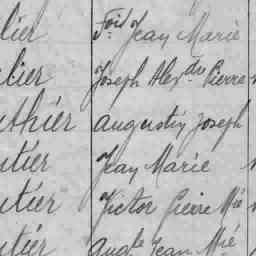 lier Fois Jean Marie
lier Joseph Alexdre Pierre
thier augustin Joseph
utier Jean Marie
utier Victor Pierre Mie
utier augte Jean Mie